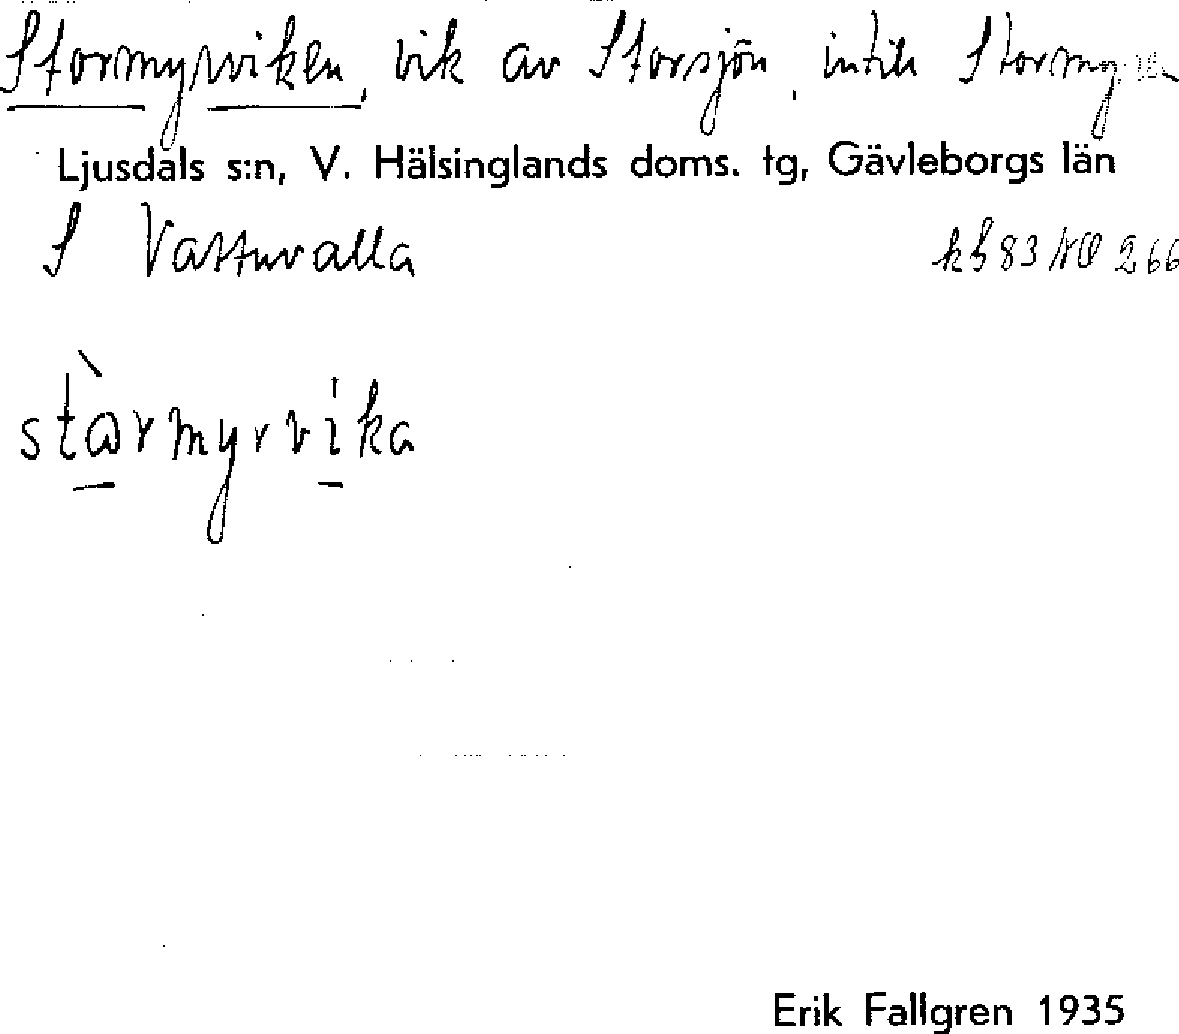 Stormyrviken, vik av Storsjön, intill Stormyren
Ljusdals s:n, V. Hälsinglands doms. tg, Gävleborgs län
S Vattuvalla kb 83 NO 266
stàrmyrvika
Erik Fallgren 1935